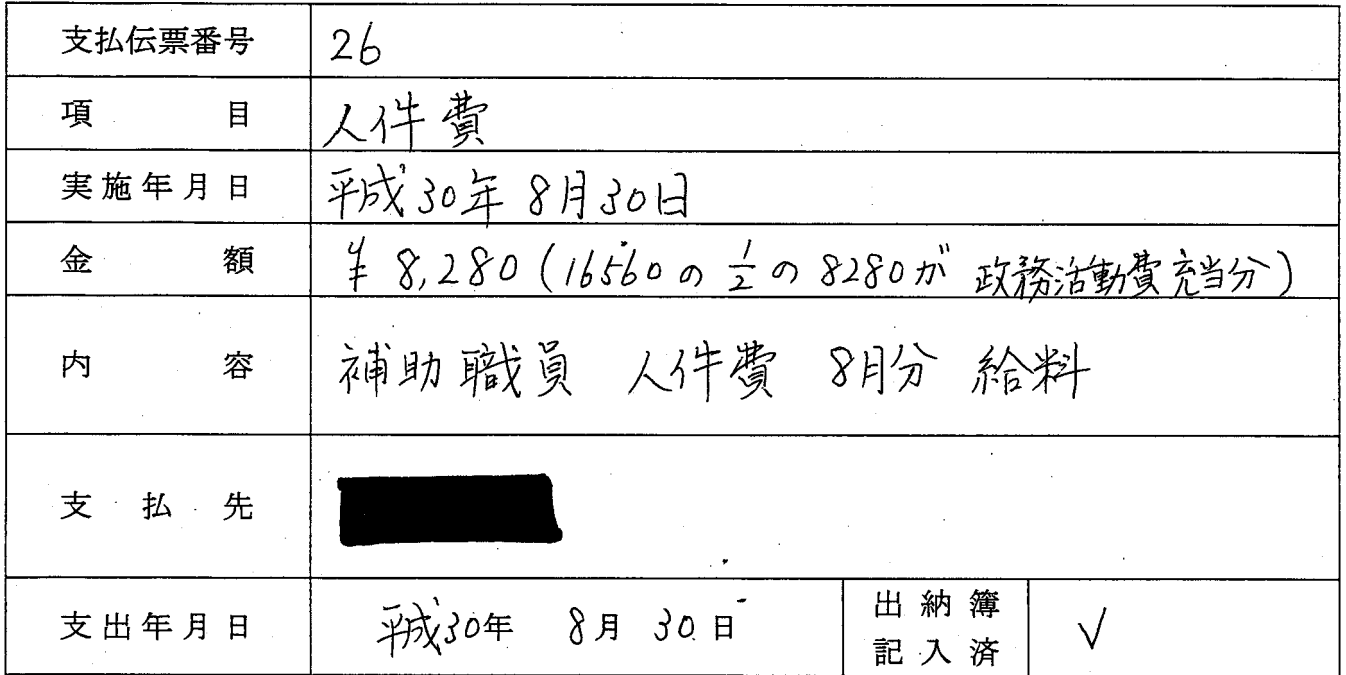 支払伝票番号 26
項目 人件費
実施年月日 平成30年8月30日
金額 ¥8,280(16560の1/2の8280が政務活動費充当分)
内容 補助職員 人件費 8月分 給料
支払先
支出年月日 平成30年 8月 30日 出納簿記入済 ✓